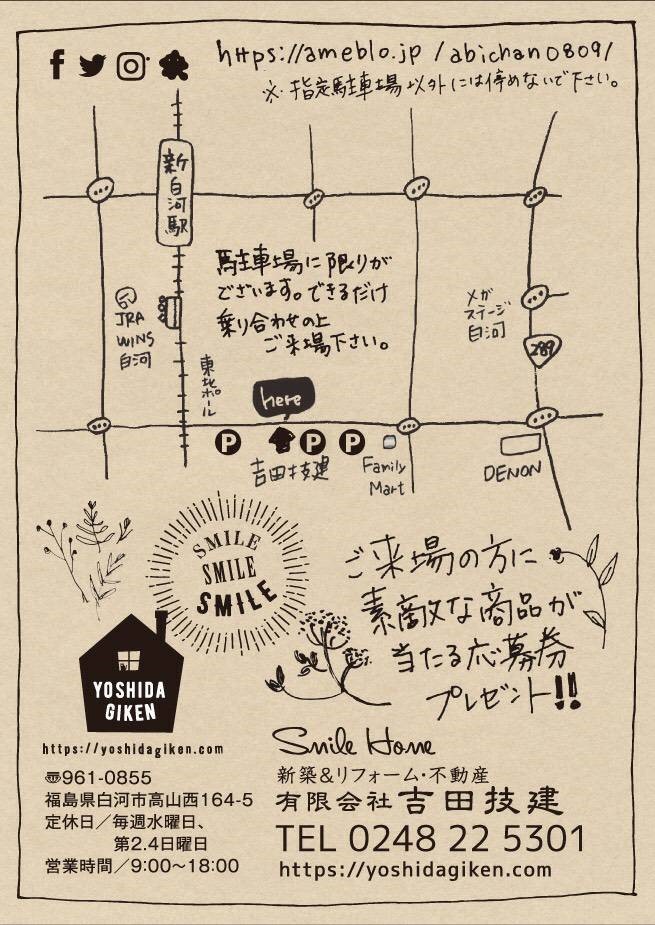 https://ameblo.jp/abichan0809/
※指定駐車場以外には停めないで下さい。
新白河駅
駐車場に限りが
ございます。できるだけ
乗り合わせの上
ご来場下さい。
JRA
WINS
白河
メガ
ステージ
白河
289
東北ポール
here
P
P
P
吉田技建
Family
Mart
DENON
SMILE
SMILE
SMILE
ご来場の方に
素敵な商品が
当たる応募券
プレゼント!!
YOSHIDA
GIKEN
https://yoshidagiken.com
〠961-0855
福島県白河市高山西164-5
定休日／毎週水曜日、
第2.4日曜日
営業時間／9:00〜18:00
Smile Home
新築&リフォーム・不動産
有限会社吉田技建
TEL 0248 22 5301
https://yoshidagiken.com